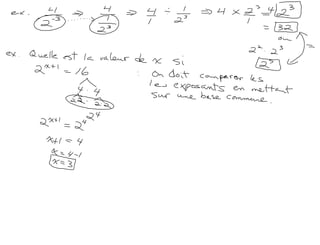 ex. 4/2⁻³ ⇒ 4/(1/2³) ⇒ 4/1 ÷ 1/2³ ⇒ 4 × 2³/1 = 4·2³
= 32
ou
2²·2³ =
2⁵
ex. Quelle est la valeur de x si
2ˣ⁺¹ = 16
: On doit comparer les
les exposants en mettant
sur une base commune.
4·4
2·2· 2·2
2⁴
2ˣ⁺¹ = 2⁴
x+1 = 4
x = 4-1
x = 3